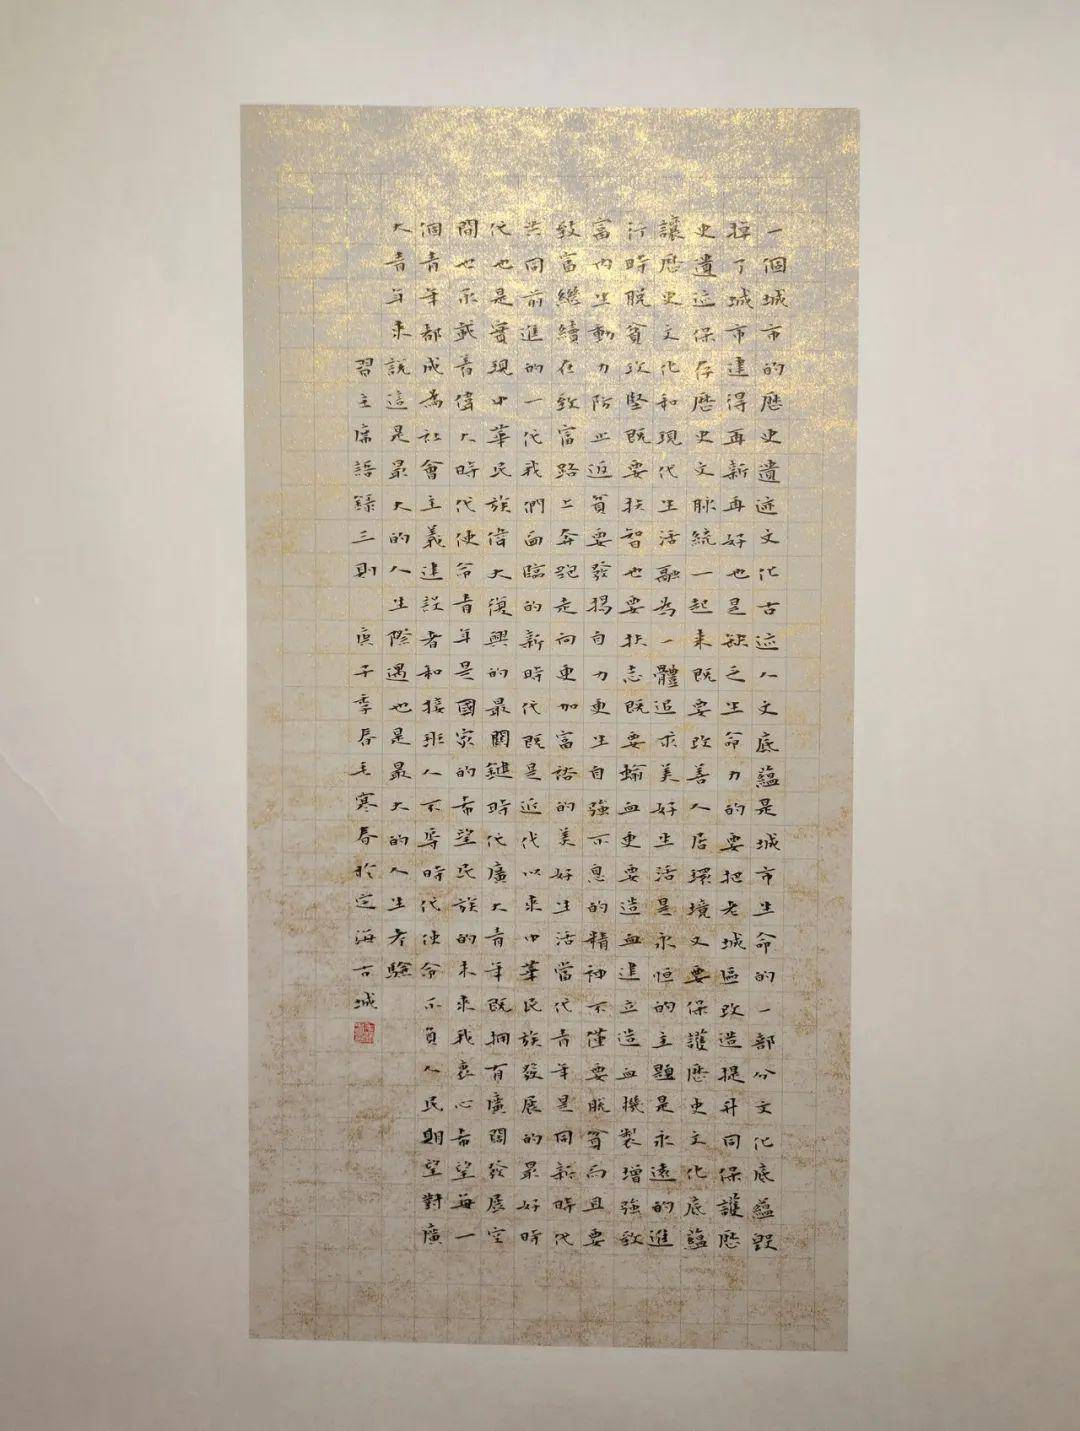 一個城市的歷史遺迹文化古迹人文底蘊是城市生命的一部分文化底蘊毀
掉了城市建得再新再好也是缺乏生命力的要把老城區改造提升同保護歷
史遺迹保存歷史文脉統一起來既要改善人居環境又要保護歷史文化底蘊
讓歷史文化和現代生活融為一體追求美好生活是永恒的主題是永遠的進
行時脫貧攻堅既要扶智也要扶志既要輸血更要造血建立造血機製增強致
富內生動力防止返貧要發揚自力更生自強不息的精神不僅要脫貧而且要
致富繼續在致富路上奔跑走向更加富裕的美好生活當代青年是同新時代
共同前進的一代我們面臨的新時代既是近代以來中華民族發展的最好時
代也是實現中華民族偉大復興的最關鍵時代廣大青年既擁有廣闊發展空
間也承載着偉大時代使命青年是國家的希望民族的未來我衷心希望每一
個青年都成為社會主義建設者和接班人不辱時代使命不負人民期望對廣
大青年來說這是最大的人生際遇也是最大的人生考驗
習主席語錄三則 庚子季春毛寒春於定海古城